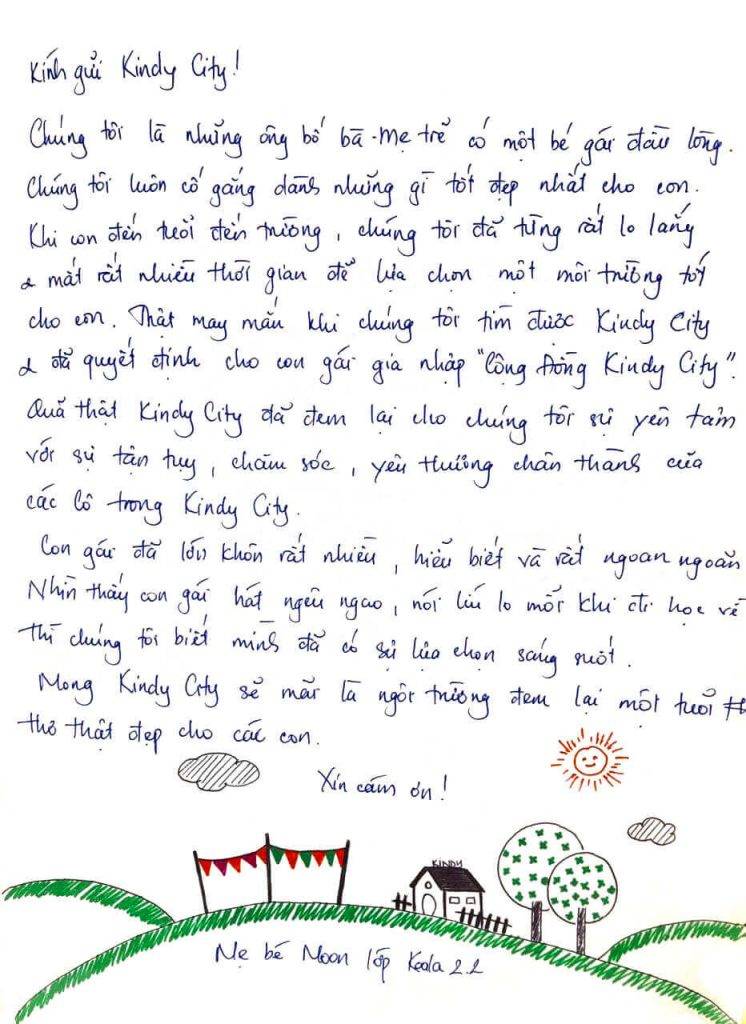 Kính gửi Kindy City!
Chúng tôi là những ông bố bà mẹ trẻ có một bé gái đầu lòng.
Chúng tôi luôn cố gắng dành những gì tốt đẹp nhất cho con.
Khi con đến tuổi đến trường, chúng tôi đã từng rất lo lắng
& mất rất nhiều thời gian để lựa chọn một môi trường tốt
cho con. Thật may mắn khi chúng tôi tìm được Kindy City
& đã quyết định cho con gái gia nhập "Cộng Đồng Kindy City".
Quả thật Kindy City đã đem lại cho chúng tôi sự yên tâm
với sự tận tụy, chăm sóc, yêu thương chân thành của
các cô trong Kindy City.
Con gái đã lớn khôn rất nhiều, hiểu biết và rất ngoan ngoãn
Nhìn thấy con gái hát ngêu ngao, nói líu lo mỗi khi đi học về
thì chúng tôi biết mình đã có sự lựa chọn sáng suốt.
Mong Kindy City sẽ mãi là ngôi trường đem lại một tuổi
thơ thật đẹp cho các con.
Xin cảm ơn!
KINDY
Mẹ bé Moon lớp Keala 2.2